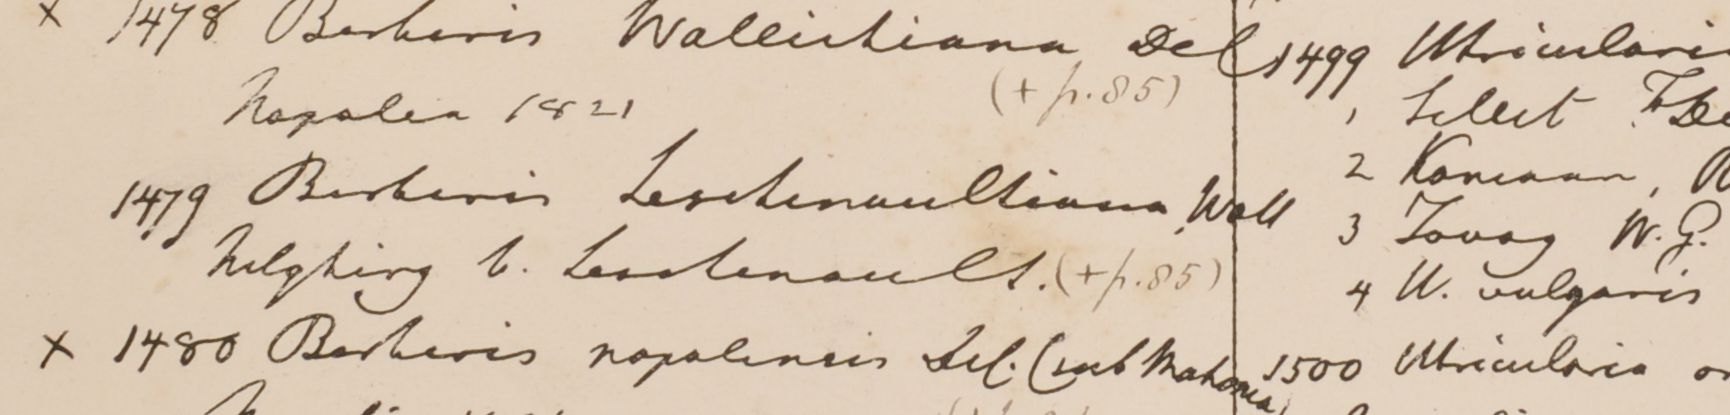 x 1478 Berberis Wallichiana Del
(+ p. 85)
Napalia 1821
1479 Berberis Leschenaultiana Wall
Nelghiry b. Leschenault. (+ p. 85)
x 1480 Berberis napalensis Del. (sub Mahonia)
1499 Utricularia
1 Sillet
2 Kamaon,
3 Tavoy W. G.
4 U. vulgaris
1500 Utricularia